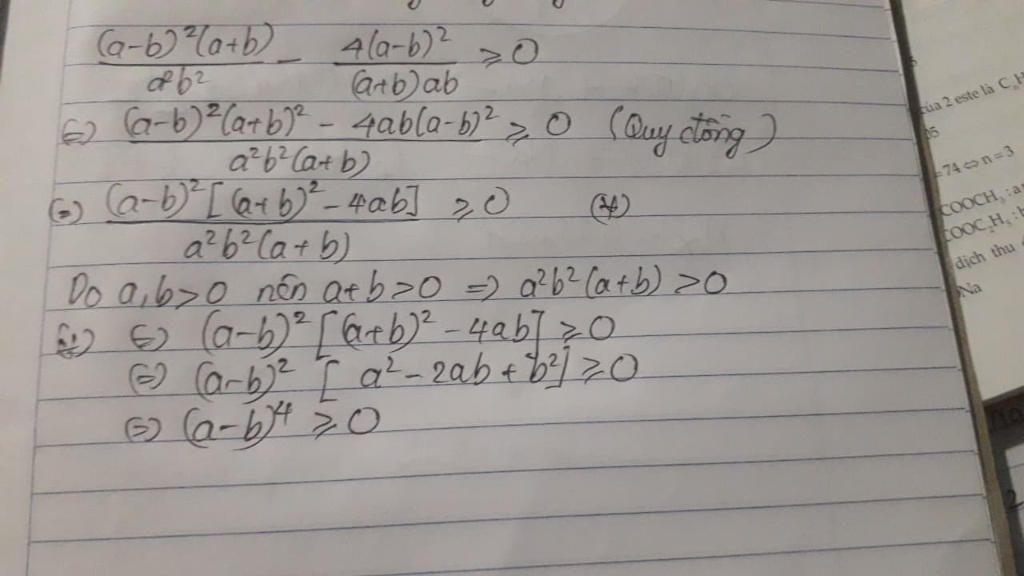 (a-b)²(a+b)/a²b² - 4(a-b)²/(a+b)ab ≥ 0
⇔ (a-b)²(a+b)² - 4ab(a-b)²/a²b²(a+b) ≥ 0 (Quy đồng)
⇔ (a-b)²[(a+b)² - 4ab]/a²b²(a+b) ≥ 0 (*)
Do a,b>0 nên a+b>0 ⇒ a²b²(a+b) >0
(*) ⇔ (a-b)² [(a+b)² - 4ab] ≥ 0
⇔ (a-b)² [a² - 2ab + b²] ≥ 0
⇔ (a-b)⁴ ≥ 0
của 2 este là
=74 ⇔ n = 3
COOCH₃ : a
COOC₂H₅ : b
dịch thu
Na